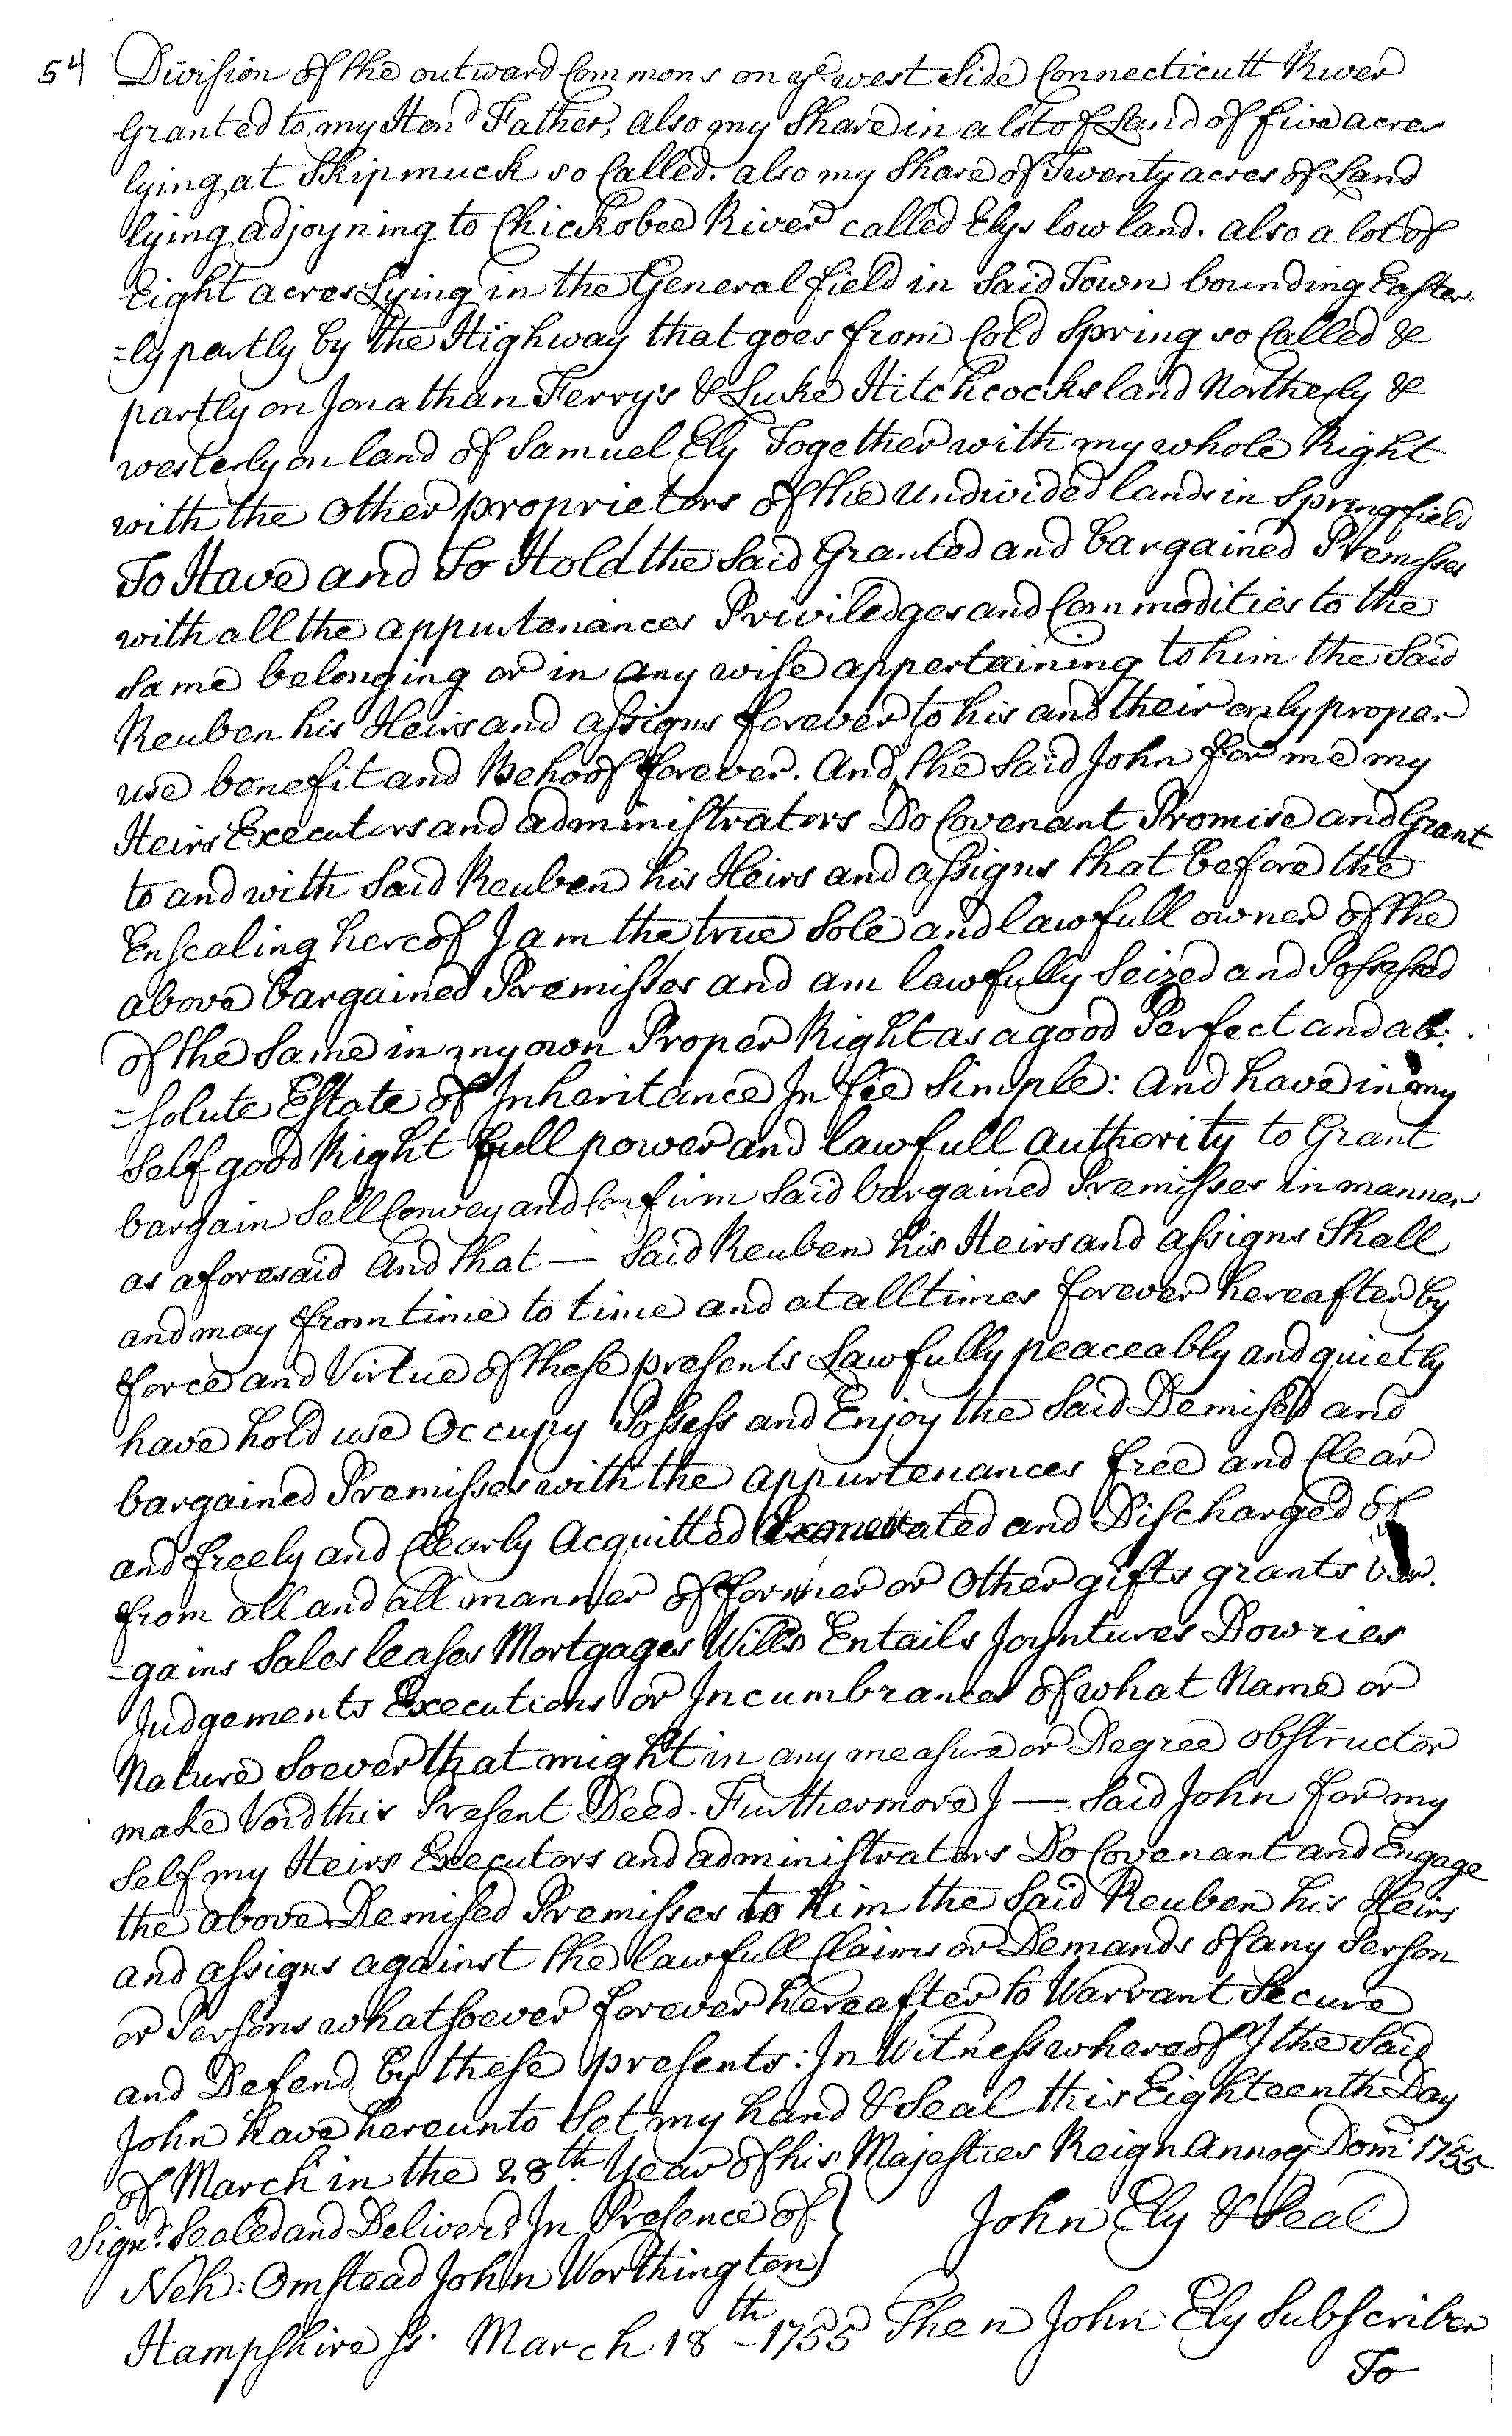 54 Division of the outward Commons on ye west Side Connecticutt River
Granted to my Hond Father, also my Share in a lot of Land of five acres
lying at Skipmuck so Called. also my Share of Twenty acres of Land
lying adjoyning to Chickobee River called Elys low land. also a lot of
Eight acres Lying in the General field in Said Town bounding Easter-
=ly partly by the Highway that goes from Cold Spring so Called &
partly on Jonathan Ferrys & Luke Hitchcocks land Northerly &
westerly on land of Samuel Ely Together with my whole Right
with the Other proprietors of the Undivided lands in Springfield
To Have and To Hold the Said Granted and bargained Premisses
with all the appurtenances Priviledges and Commodities to the
Same belonging or in any wise appertaining to him the Said
Reuben his Heirs and assigns forever to his and their only proper
use benefit and Behoof forever. And, the Said John for me my
Heirs Executors and administrators Do Covenant Promise and Grant
to and with Said Reuben his Heirs and assigns that before the
Ensealing hereof I am the true Sole and lawfull owner of the
above bargained Premisses and am lawfully Seized and Possessed
of the Same in my own Proper Right as a good Perfect and ab:
=solute Estate of Inheritance In fee Simple: And have in my
Self good Right full power and lawfull authority to Grant
bargain Sell Convey and Confirm Said bargained Premisses in manner
as aforesaid And that — Said Reuben his Heirs and assigns Shall
and may from time to time and at all times forever hereafter by
force and Virtue of these presents Lawfully peaceably and quietly
have hold use Occupy Possess and Enjoy the Said Demised and
bargained Premisses with the appurtenances free and Clear
and freely and Clearly Acquitted Exonerated and Discharged of
from all and all manner of former or Other gifts grants bar
=gains Sales leases Mortgages Wills Entails Joyntures Dowries
Judgements Executions or Incumbrances of what Name or
Nature Soever that might in any measure or Degree obstruct or
make Void this Present Deed. Furthermore I — Said John for my
Self my Heirs Executors and administrators Do Covenant and Engage
the above Demised Premisses to him the Said Reuben his Heirs
and assigns against the lawfull Claims or Demands of any Person
or Persons whatsoever forever hereafter to Warrant Secure
and Defend by these presents: In Witness whereof I the Said
John have hereunto Set my hand & Seal this Eighteenth Day
of March in the 28th Year of his Majesties Reign Annoq Dom: 1755
Signd. Sealed and Deliverd In Presence of } John Ely & Seal
Neh: Omstead John Worthington
Hampshire Ss. March 18th - 1755 Then John Ely Subscriber
To